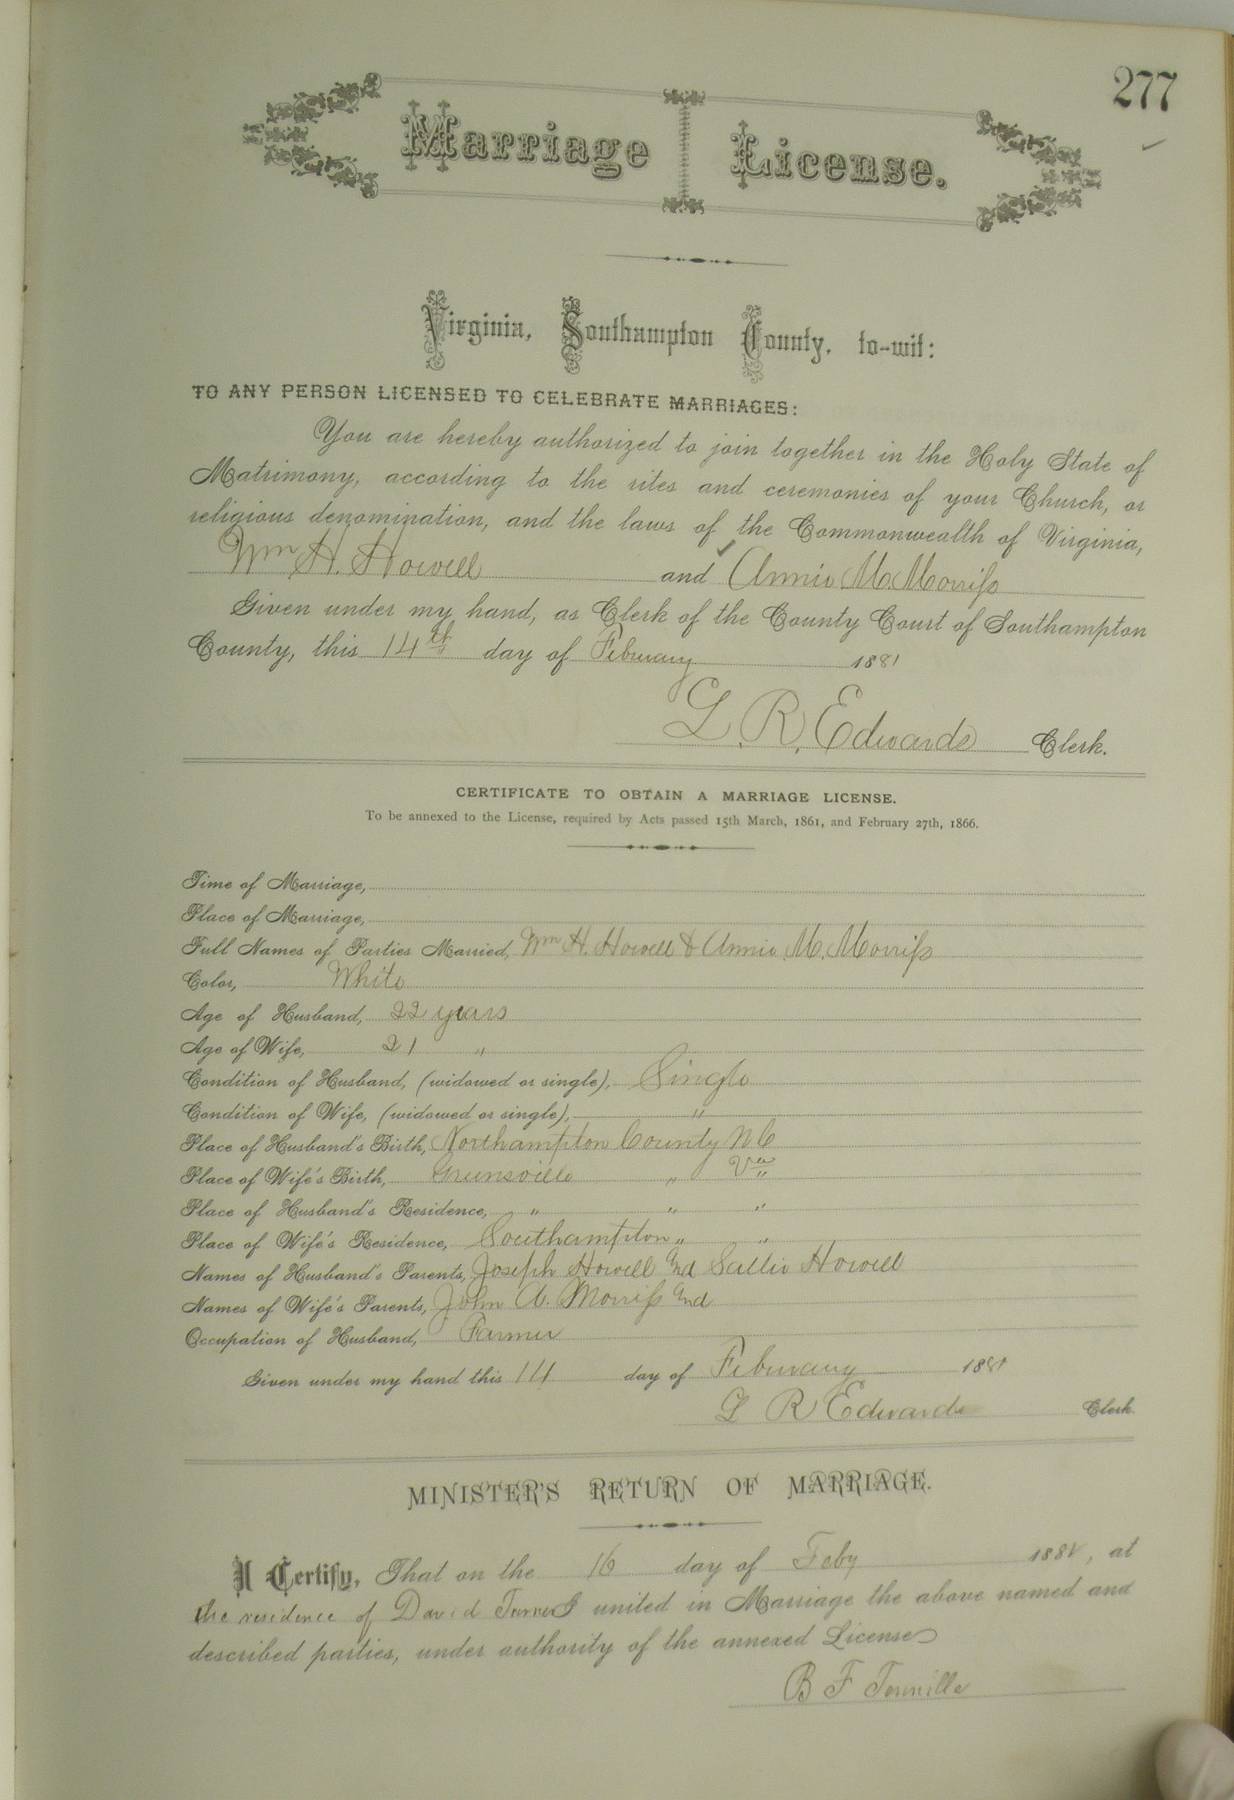 277
Marriage License.
Virginia, Southampton County, to-wit:
TO ANY PERSON LICENSED TO CELEBRATE MARRIAGES:
You are hereby authorized to join together in the Holy State of
Matrimony, according to the rites and ceremonies of your Church, or
religious denomination, and the laws of the Commonwealth of Virginia,
Wm H. Howell and Annie M. Morriss
Given under my hand, as Clerk of the County Court of Southampton
County, this 14th day of February 1881
L. R. Edwards Clerk.
CERTIFICATE TO OBTAIN A MARRIAGE LICENSE.
To be annexed to the License, required by Acts passed 15th March, 1861, and February 27th, 1866.
Time of Marriage,
Place of Marriage,
Full Names of Parties Married, Wm H. Howell & Annie M. Morriss
Color, White
Age of Husband, 22 years
Age of Wife, 21 "
Condition of Husband, (widowed or single), Single
Condition of Wife, (widowed or single), "
Place of Husband's Birth, Northampton County N C
Place of Wife's Birth, Greensville " Va
Place of Husband's Residence, " " "
Place of Wife's Residence, Southampton " "
Names of Husband's Parents, Joseph Howell and Sallie Howell
Names of Wife's Parents, John A. Morriss and
Occupation of Husband, Farmer
Given under my hand this 14 day of February 1881
L R Edwards Clerk.
MINISTER'S RETURN OF MARRIAGE.
I Certify, That on the 16 day of Feby 1881, at
the residence of David Turner I united in Marriage the above named and
described parties, under authority of the annexed License
B F Tennille